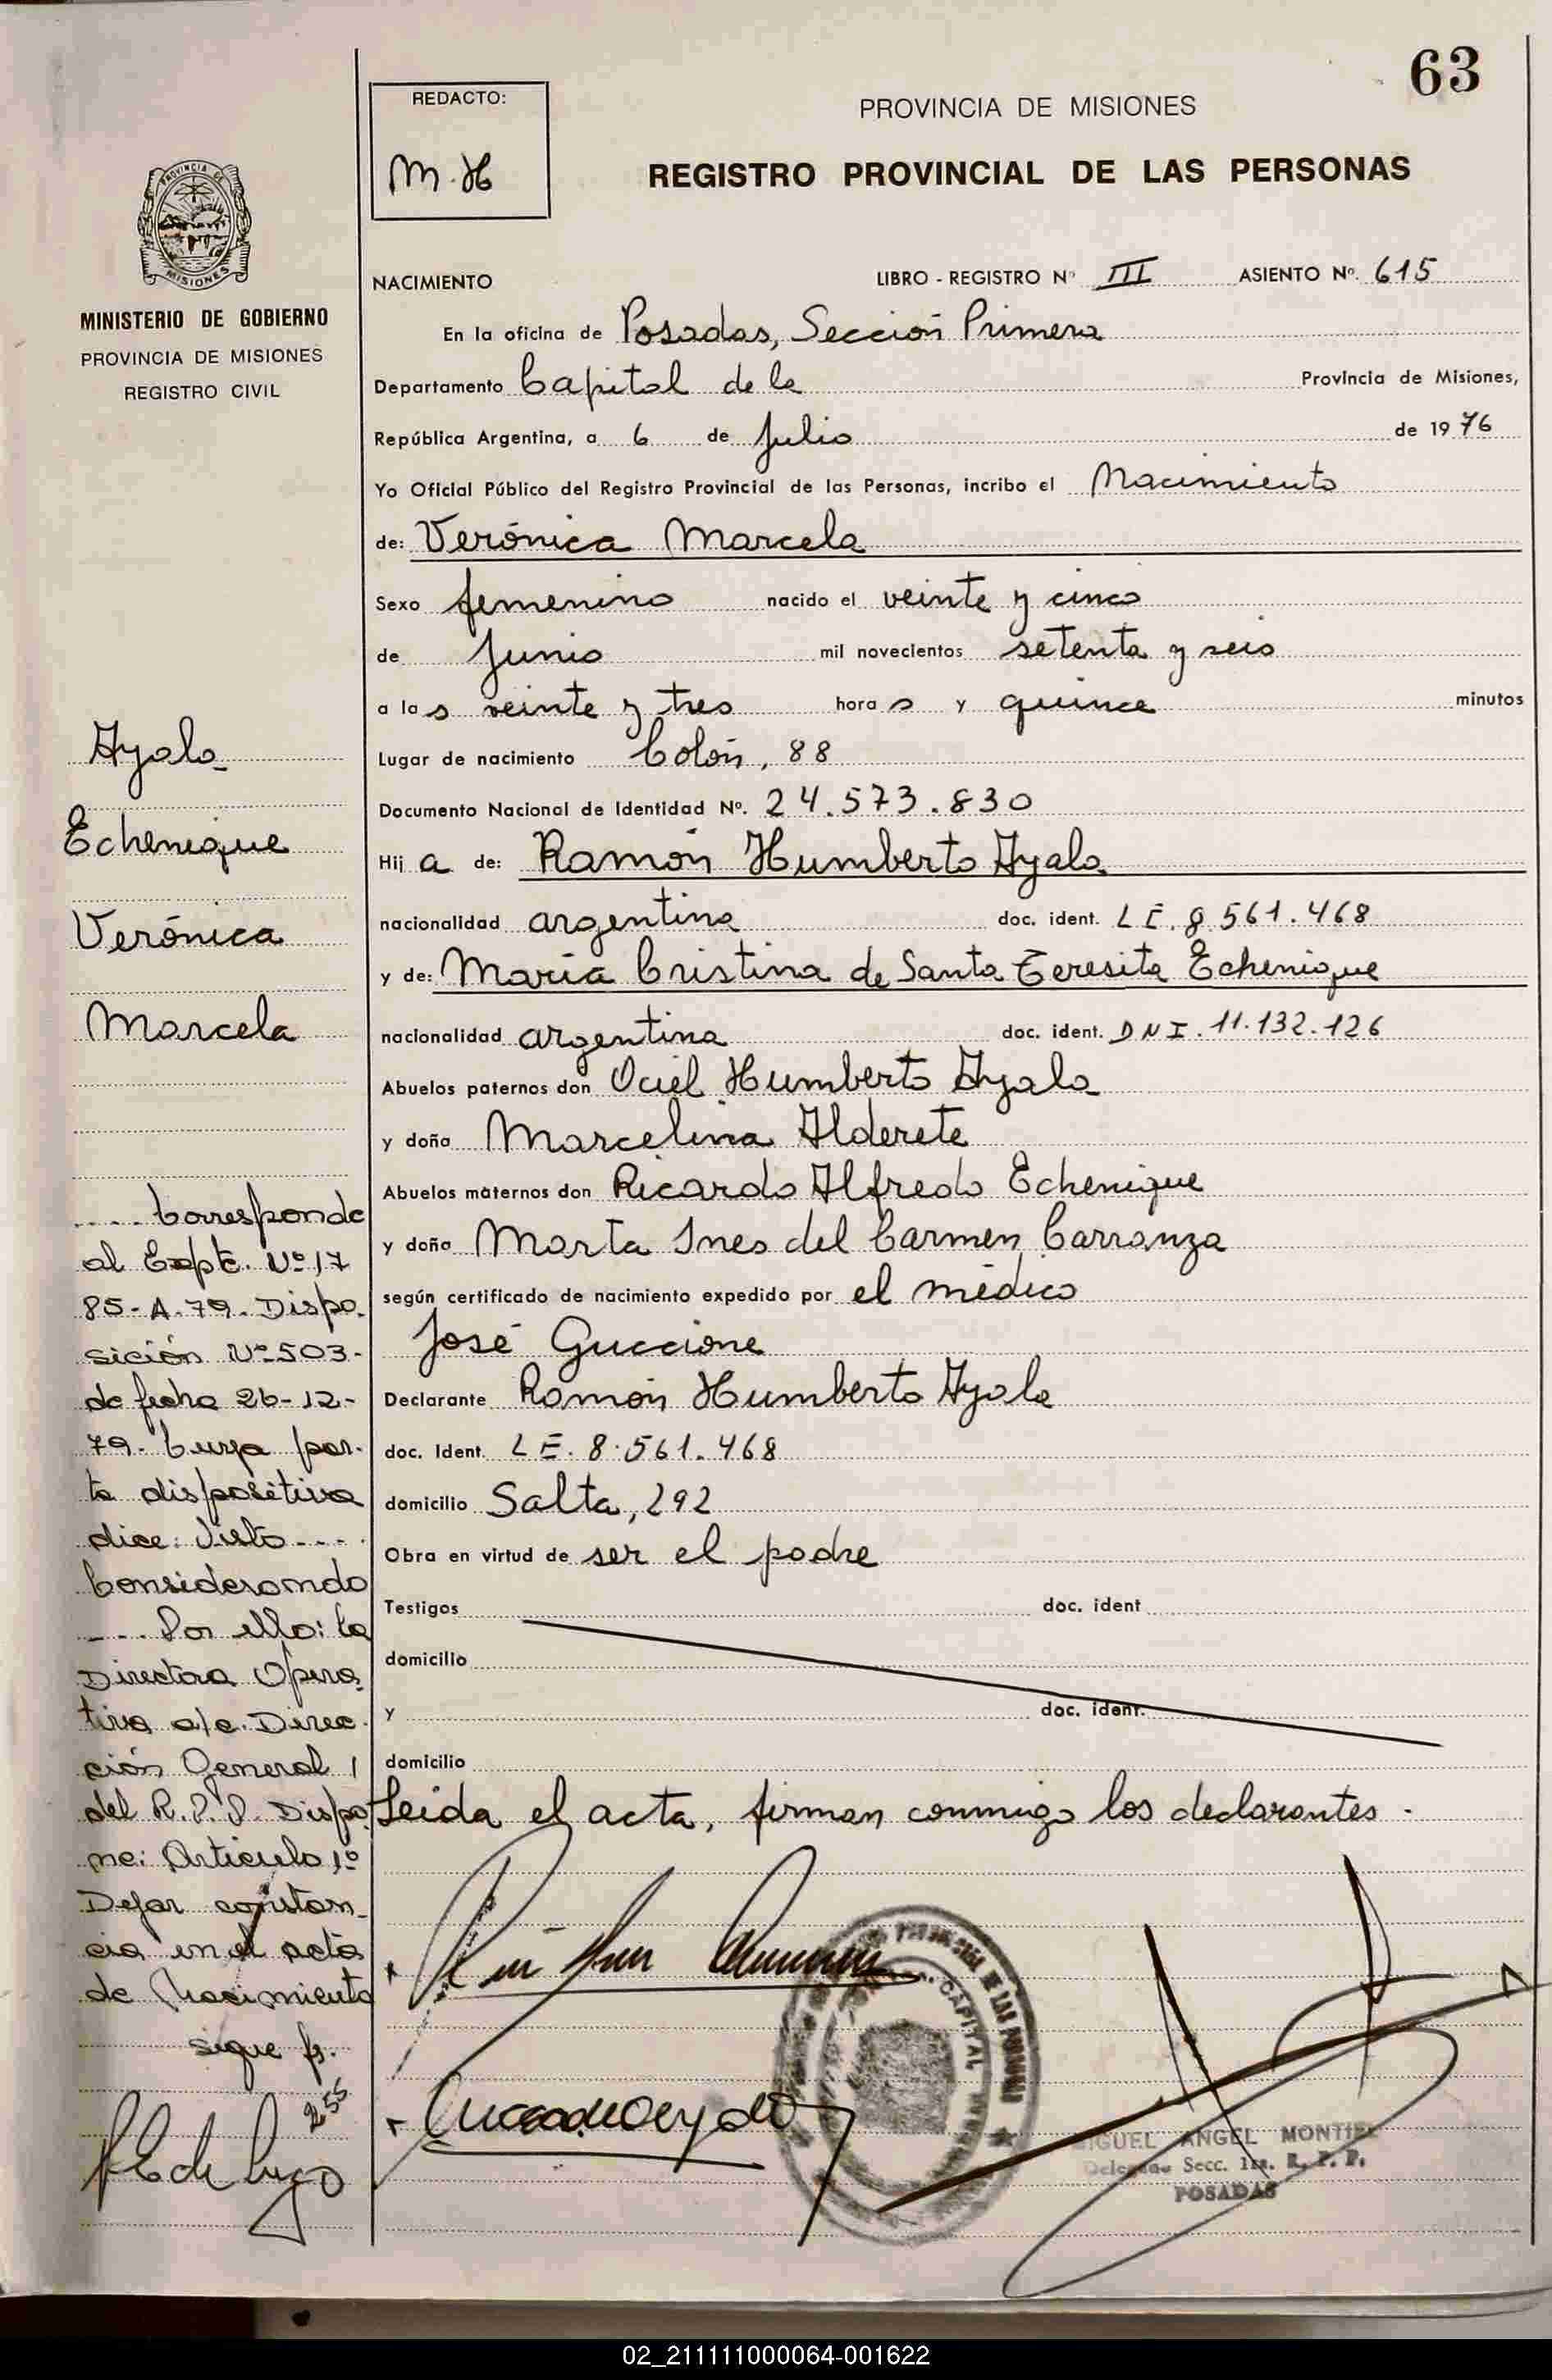 63
REDACTO:
M.H
PROVINCIA DE MISIONES
REGISTRO PROVINCIAL DE LAS PERSONAS
PROVINCIA DE
MISIONES
MINISTERIO DE GOBIERNO
PROVINCIA DE MISIONES
REGISTRO CIVIL
NACIMIENTO LIBRO - REGISTRO Nº III ASIENTO Nº. 615
En la oficina de Posadas, Sección Primera
Departamento Capital de la Provincia de Misiones,
República Argentina, a 6 de Julio de 1976
Yo Oficial Público del Registro Provincial de las Personas, incribo el Nacimiento
de: Verónica Marcela
Sexo femenino nacido el veinte y cinco
de Junio mil novecientos setenta y seis
a las veinte y tres horas y quince minutos
Lugar de nacimiento Colón, 88
Documento Nacional de Identidad Nº. 24.573.830
Hija de: Ramón Humberto Ayala
nacionalidad argentina doc. ident. LE. 8.561.468
y de: María Cristina de Santa Teresita Echenique
nacionalidad argentina doc. ident. DNI. 11.132.126
Abuelos paternos don Ociel Humberto Ayala
y doña Marcelina Alderete
Abuelos maternos don Ricardo Alfredo Echenique
y doña Marta Ines del Carmen Carranza
según certificado de nacimiento expedido por el médico
José Guccione
Declarante Ramón Humberto Ayala
doc. Ident. LE. 8.561.468
domicilio Salta, 292
Obra en virtud de ser el padre
Testigos doc. ident
domicilio
y doc. ident.
domicilio
Leida el acta, firman conmigo los declarantes.
Ayala
Echenique
Verónica
Marcela
.... Corresponde
al Expte. Nº 17
85-A-79. Dispo-
sición Nº 503-
de fecha 26-12-
79. Cuya par-
te dispositiva
dice: Visto ----
Considerando
---- Por ello: la
Directora Opera-
tiva a/c. Direc-
ción General
del R.P.P. Dispo-
ne: Artículo 1º
Dejar constan-
cia en el acta
de Nacimiento
sigue fs.
255
CAPITAL
MIGUEL ANGEL MONTIEL
Delegado Secc. 1ra. R. P. P.
POSADAS
02_211111000064-001622